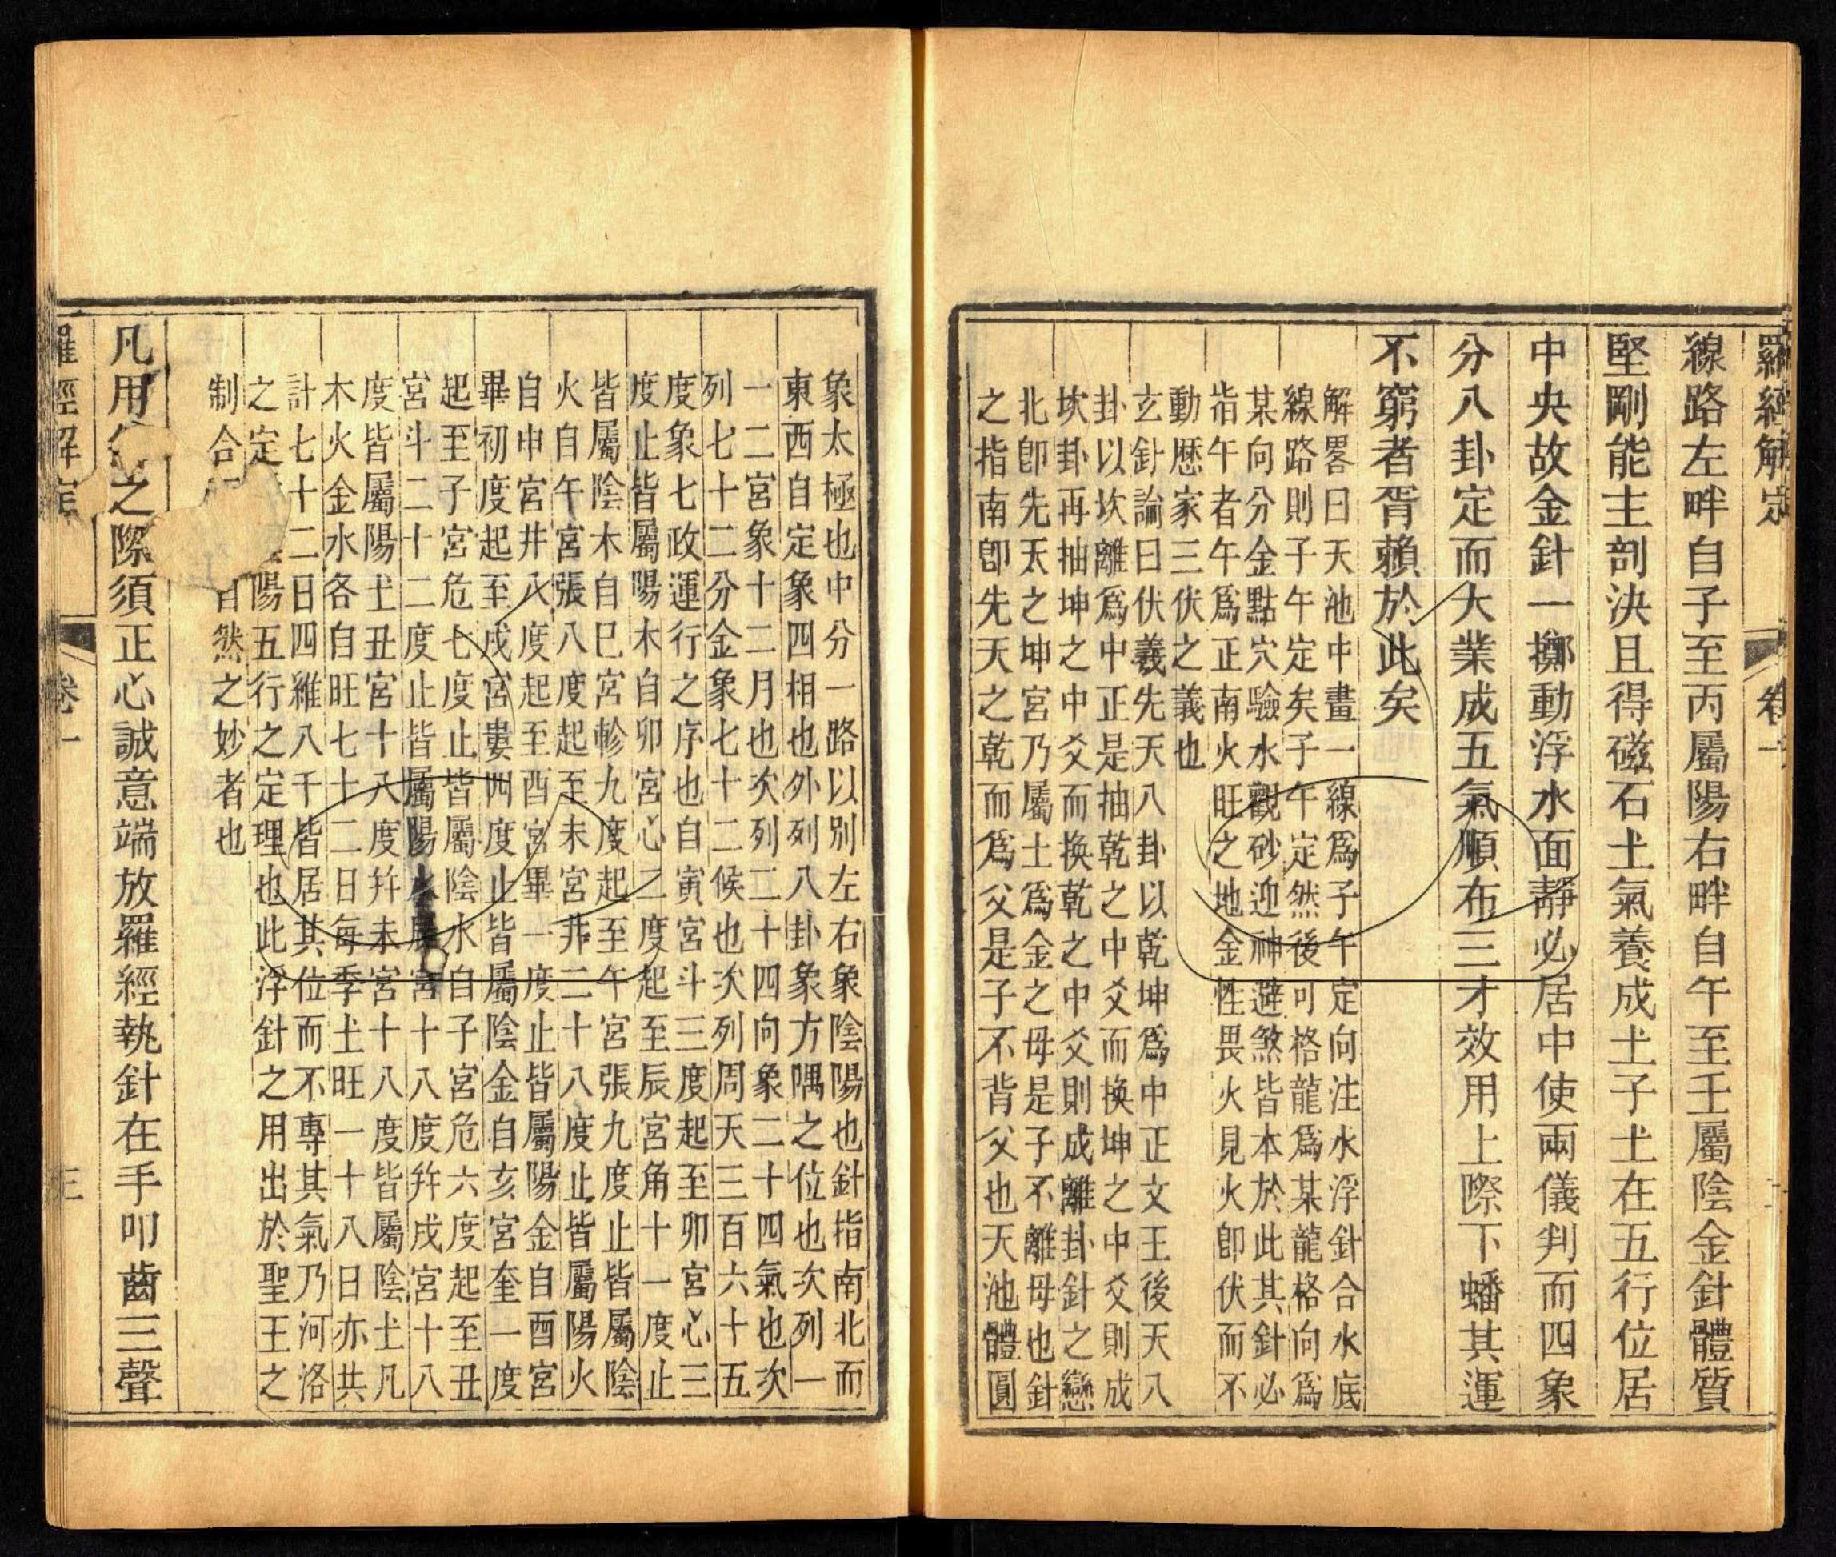 羅經解定
卷一
線路左畔自子至丙屬陽右畔自午至壬屬陰金針體質
堅剛能主剖決且得磁石土氣養成土子土在五行位居
中央故金針一擲動浮水面靜必居中使兩儀判而四象
分八卦定而大業成五氣順布三才效用上際下蟠其運
不窮者胥賴於此矣
解畧曰天池中畫一線爲子午定向注水浮針合水底
線路則子午定矣子午定然後可格龍爲某龍格向爲
某向分金點穴驗水觀砂迎神避煞皆本於此其針必
指午者午爲正南火旺之地金性畏火見火卽伏而不
動歷家三伏之義也
玄針論曰伏義先天八卦以乾坤爲中正文王後天八
卦以坎離爲中正是抽乾之中爻而換坤之中爻則成
坎卦再抽坤之中爻而換乾之中爻則成離卦針之戀
北卽先天之坤宮乃屬土爲金之母是子不離母也針
之指南卽先天之乾而爲父是子不背父也天池體圓
象太極也中分一路以別左右象陰陽也針指南北而
東西自定象四相也外列八卦象方隅之位也次列一
一二宮象十二月也次列二十四向象二十四氣也次
列七十二分金象七十二候也次列周天三百六十五
度象七政運行之序也自寅宮斗三度起至卯宮心三
度止皆屬陽木自卯宮心二度起至辰宮角十一度止
皆屬陰木自巳宮軫九度起至午宮張九度止皆屬陰
火自午宮張八度起至未宮井二十八度止皆屬陽火
自申宮井八度起至酉宮畢一度止皆屬陽金自酉宮
畢初度起至戌宮婁四度止皆屬陰金自亥宮奎一度
起至子宮危七度止皆屬陰水自子宮危六度起至丑
宮斗二十二度止皆屬陽水辰宮十八度并戌宮十八
度皆屬陽土丑宮十八度并未宮十八度皆屬陰土凡
木火金水各自旺七十二日每季土旺一十八日亦共
計七十二日四維八千皆居其位而不專其氣乃河洛
之定陽五行之定理也此浮針之用出於聖王之
制合自然之妙者也
凡用之際須正心誠意端放羅經執針在手叩齒三聲
羅經解定
卷一
三